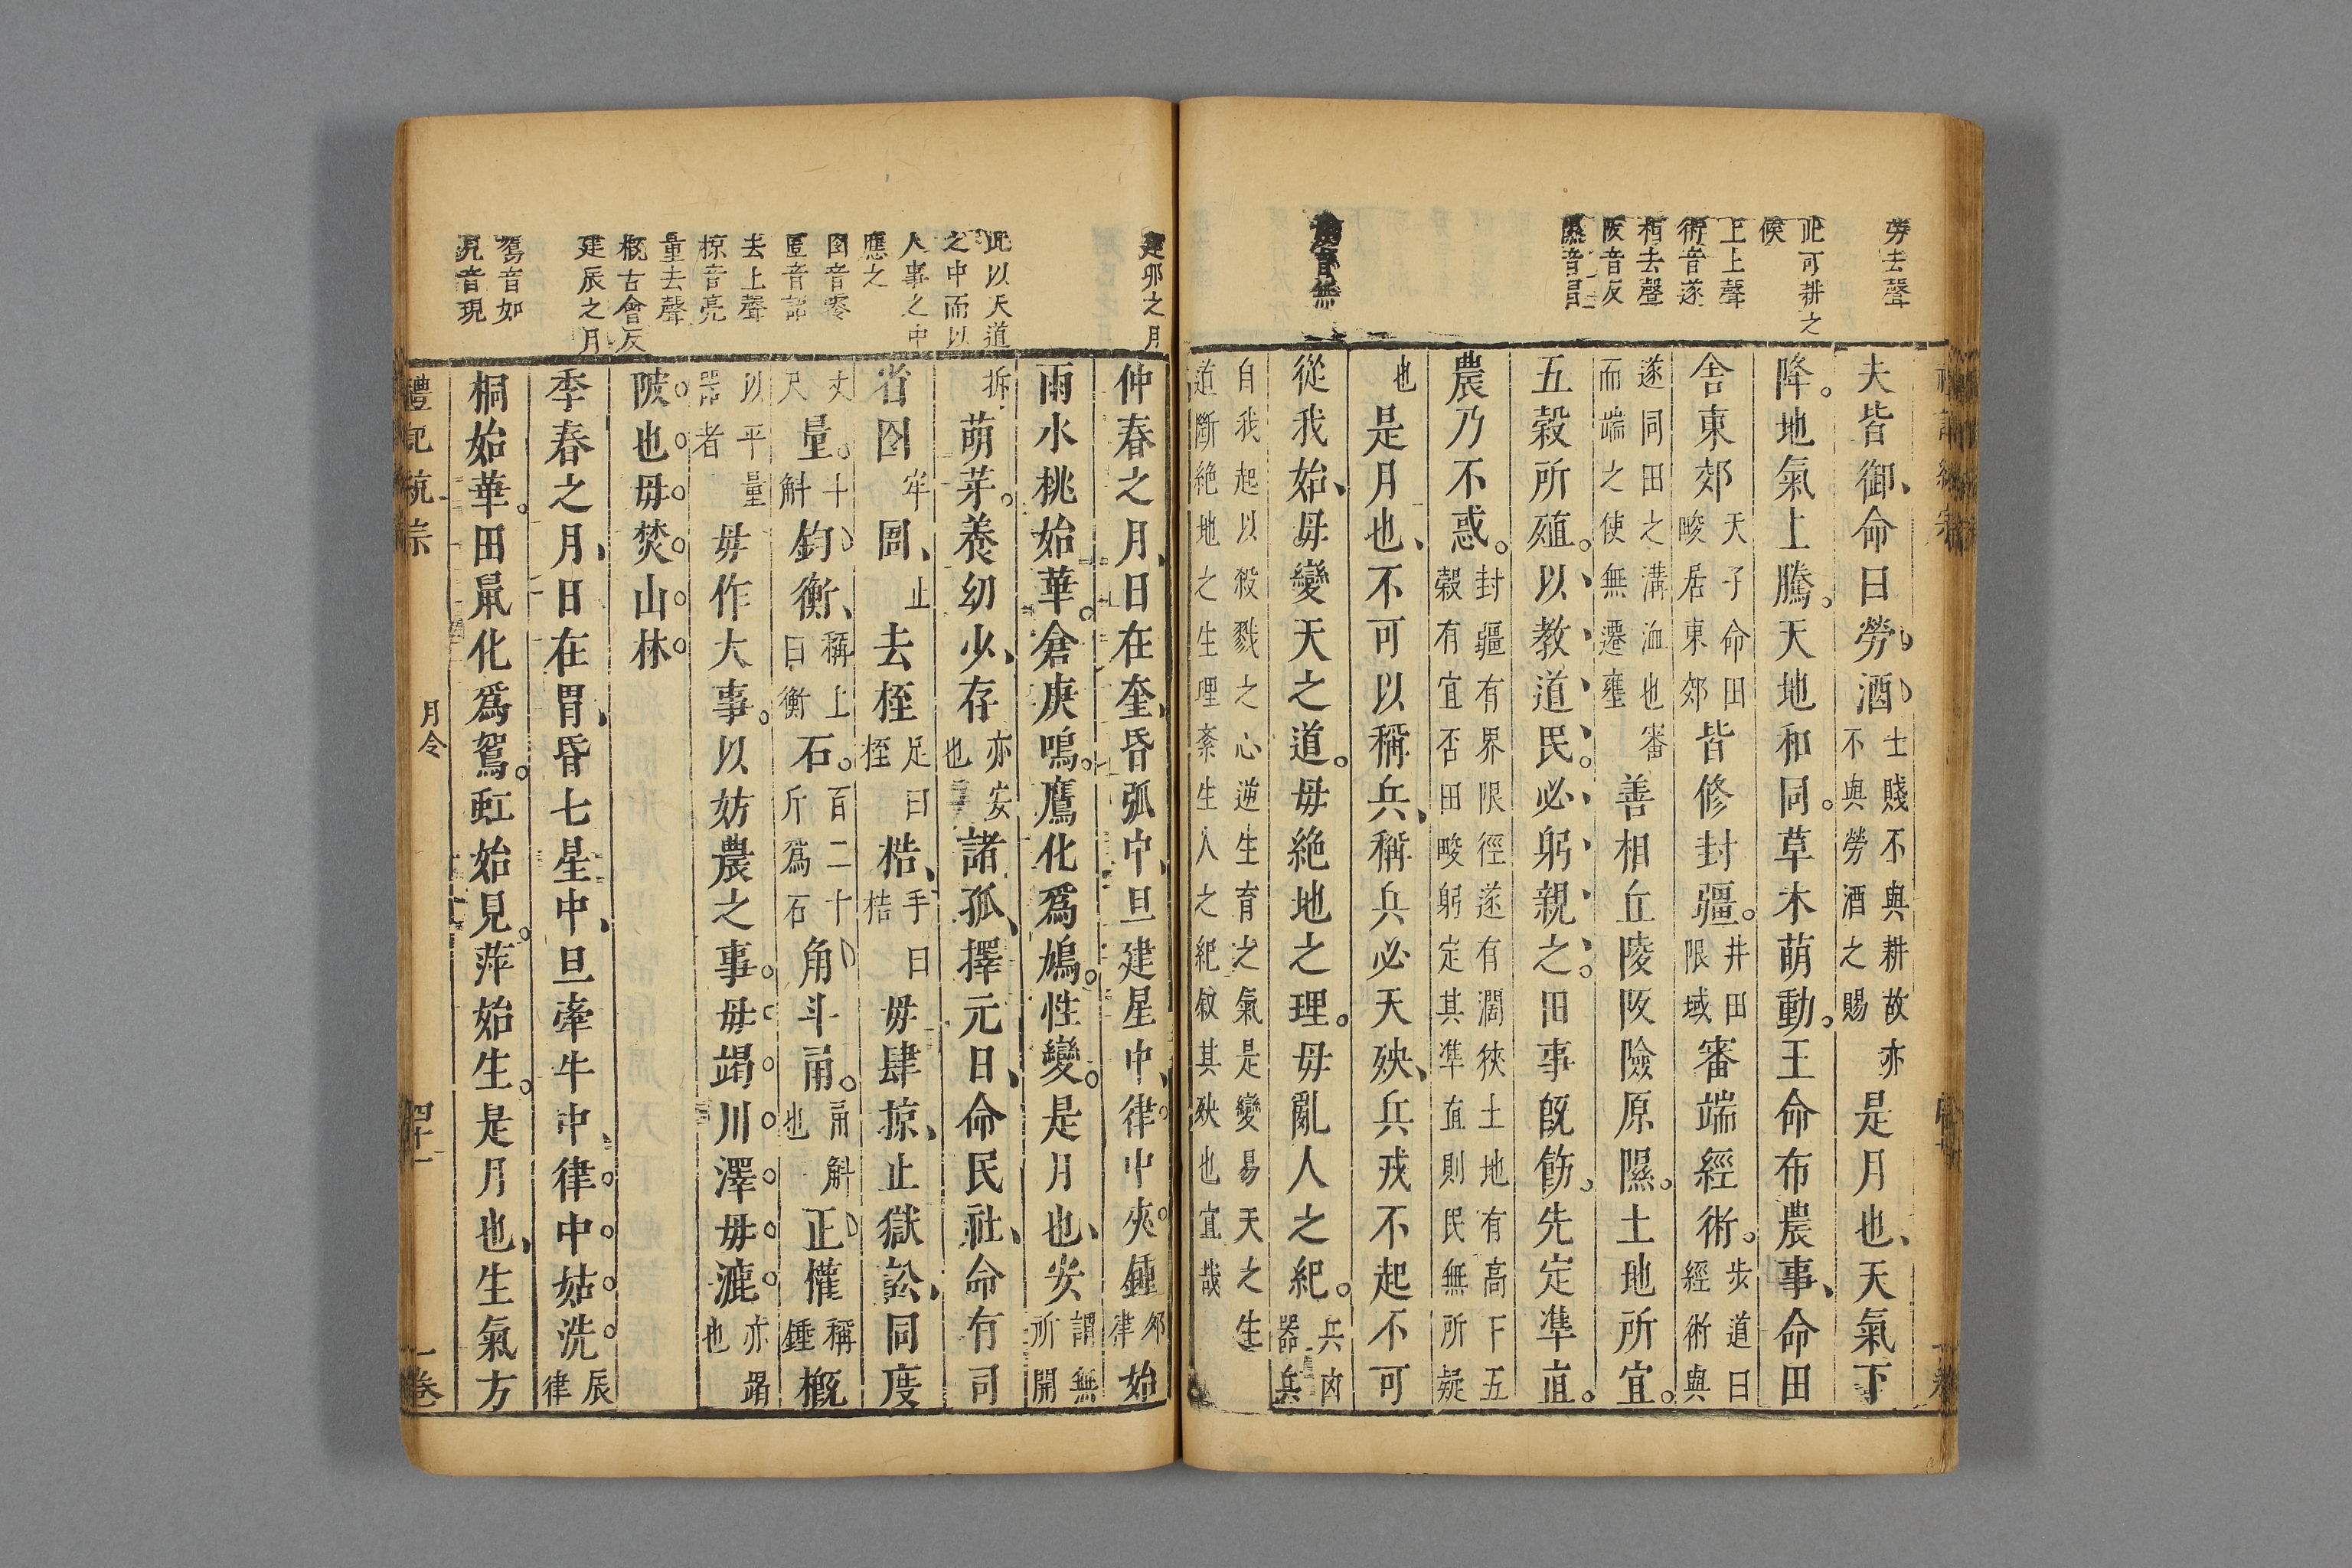 勞去聲
此可耕之
候
上上聲
術音遂
相去聲
阪音反
隰音習
夫皆御命曰勞酒士賤不與耕故亦不與勞酒之賜是月也天氣下
降地氣上騰天地和同草木萌動王命布農事命田
舍東郊天子命田畯居東郊皆修封疆井田限域審端經術步道曰經術與
遂同田之溝洫也審而端之使無遷壅善相丘陵阪險原隰土地所宜
五穀所殖以教道民必躬親之田事既飭先定準直
農乃不惑封疆有界限徑遂有濶狹土地有高下五穀有宜否田畯躬定其準直則民無所疑
也是月也不可以稱兵稱兵必天殃兵戎不起不可
從我始毋變天之道毋絕地之理毋亂人之紀兵凶器兵
自我起以殺戮之心逆生育之氣是變易天之生道斷絕地之生理紊生人之紀敘其殃也宜哉
建卯之月
此以天道
之中而以
人事之中
應之
囹音零
圄音語
去上聲
掠音亮
量去聲
概古會反
建辰之月
鴽音如
見音現
仲春之月日在奎昏弧中旦建星中律中夾鍾卯律始
雨水桃始華倉庚鳴鷹化為鳩性變是月也安謂無所開
拆萌芽養幼少存亦安也諸孤擇元日命民社命有司
省囹牢圄止去桎足曰桎梏手曰梏毋肆掠止獄訟同度
丈尺量斗斛鈞衡稱上曰衡石百二十斤為石角斗甬甬斛也正權稱錘概
以平量器者毋作大事以妨農之事毋竭川澤毋漉亦竭也
陂也毋焚山林
季春之月日在胃昏七星中旦牽牛中律中姑洗辰律
桐始華田鼠化為鴽虹始見萍始生是月也生氣方
禮記統宗
月令
一卷